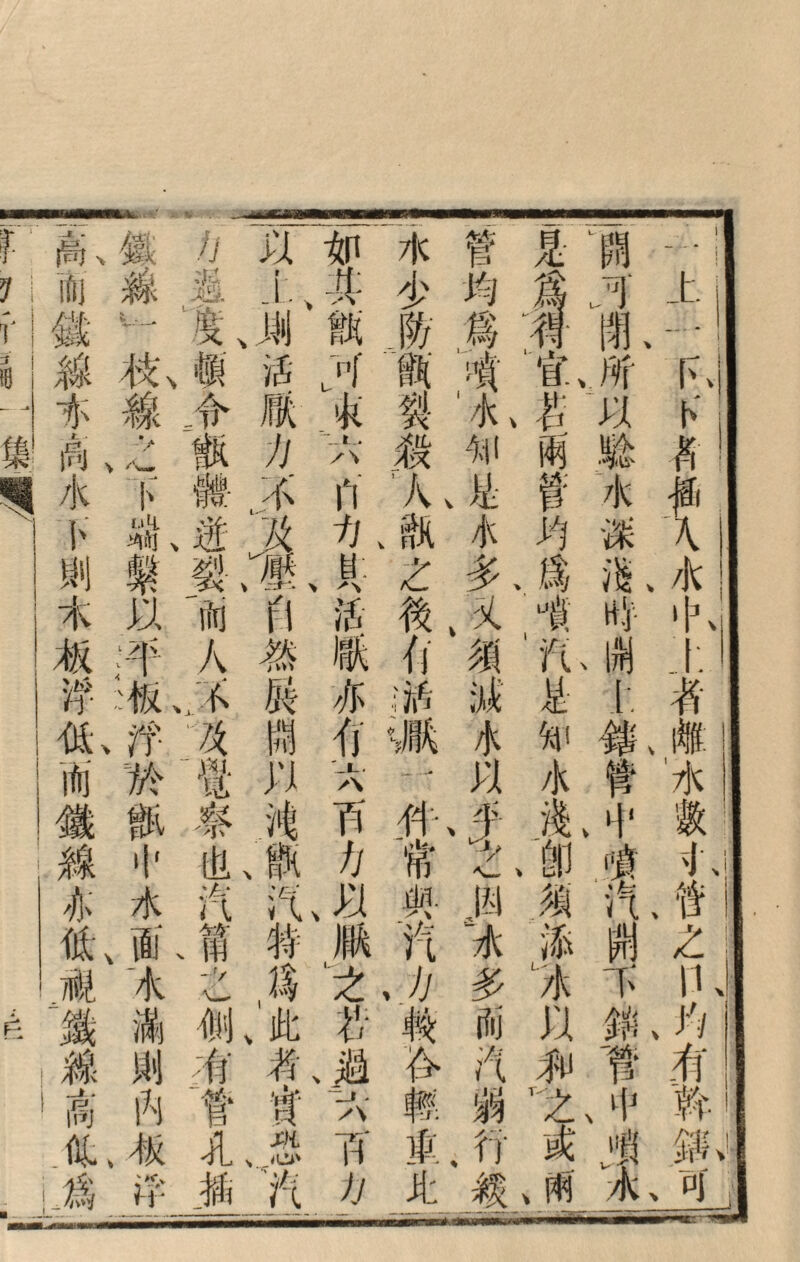 一上一下、下者插入水中、上者離水數寸、管之口、均有幹鎋、可
開可閉、所以騐水深淺、時開上鎋、管中噴汽、開下鎋、管中噴水、
是爲得宜、若兩管均爲噴汽、是知水淺、卽須添水以和之、或兩
管均爲噴水、知是水多、又須減水以平之、因水多而汽弱行緩、
水少防甑裂殺人、甑之後、有活厭一件、常與汽力較合輕重、此
如其甑可柬六百力、其活厭亦有六百力以厭之、若過六百力
以上、則活厭力不及壓、自然展開以洩甑汽、特爲此者、實恐汽
力過度、頓令甑體迸裂、而人不及覺察也、汽筩之側、有管孔、插
鐵線一枝、線之下端、繫以平板、浮於甑中水面、水滿則內板浮
高、而鐵線亦高、水下則木板浮低、而鐵線亦低、視鐵線高低、爲
博物新編一集
三